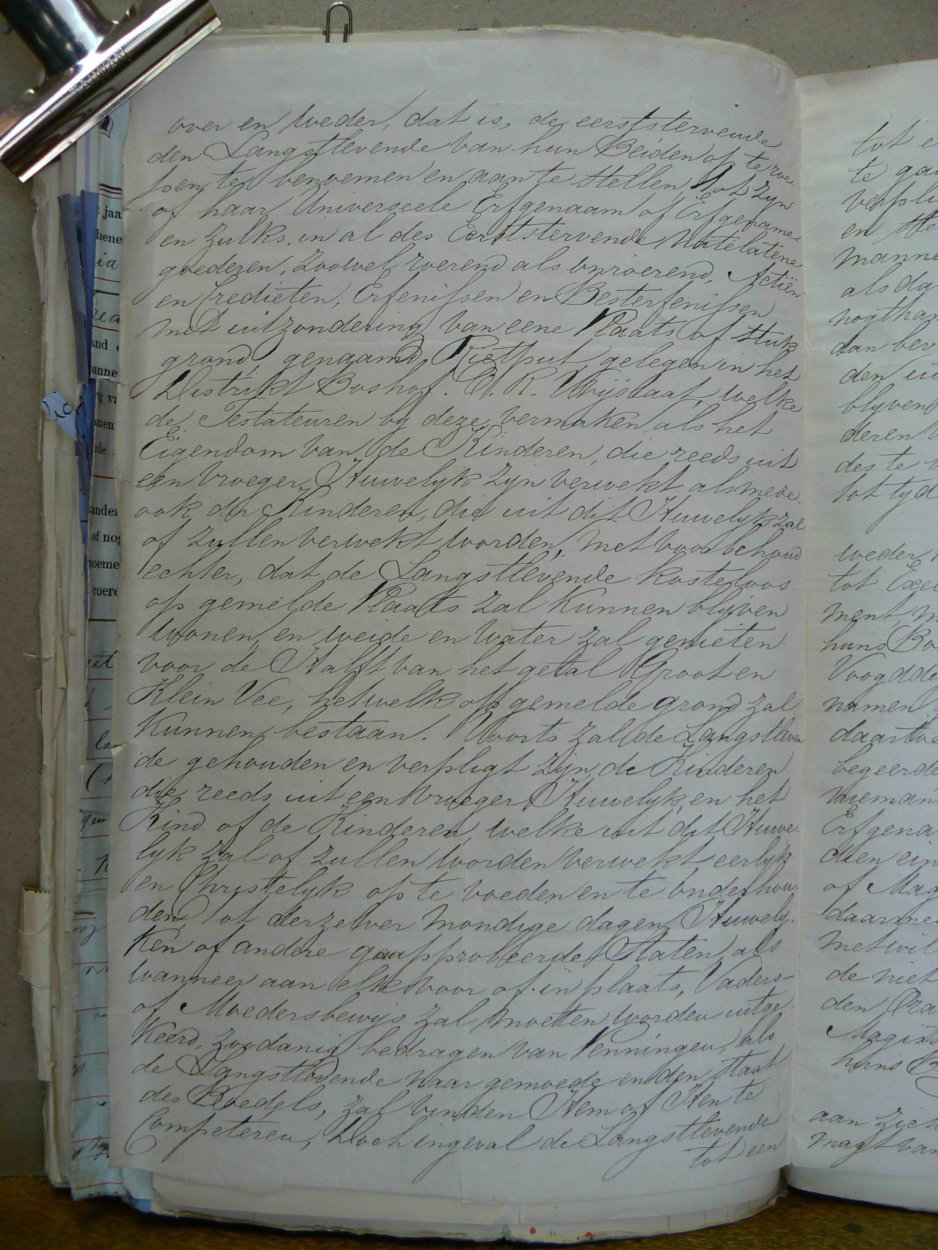 over en weder, dat is, de eerststervende
den Langstlevende van hun Beiden op te roe
pen, te benoemen en aan te stellen, tot zyn
of haar Universeele Erfgenaam of Erfgename
en zulks in al des Eerststervende Natelatene
goederen, zoowel roerend als onroerend, Actiën
en Credieten, Erfenissen en Besterfenissen
met uitzondering van eene Plaats of stuk
grond, genaamd, Rietput gelegen in het
Distrikt Boshof. O. R. Vrijstaat, welke
de Testateuren by deze vermaken, als het
Eigendom van de Kinderen, die reeds uit
een vroeger Huwelyk zyn verwekt alsmede
ook der Kinderen, die uit dit Huwelyk zal
of zullen verwekt worden, met voorbehoud
echter, dat de Langstlevende kosteloos
op gemelde Plaats zal kunnen blyven
wonen, en weide en water zal genieten
voor de Halft van het getal Groot en
Klein Vee, hetwelk op gemelde grond zal
kunnen bestaan. Voorts zal de Langstleven
de gehouden en verpligt zyn, de Kinderen
die reeds uit een vroeger Huwelyk, en het
Kind of de Kinderen, welke uit dit Huwe-
lyk zal of zullen worden verwekt, eerlyk
en Christelyk op te voeden en te onderhou-
den, tot derzelver mondige dagen, Huwely-
ken of andere geapprobeerde Staten, als
wanneer aan elk voor of in plaats, Vaders-
of Moedersbewijs zal moeten worden uitge-
keerd, zoodanig bedragen van Penningen, als
de Langstlevende naar gemoede en den staat
des Boedels, zal vinden Hem of Hen te
Competeren, doch ingeval de Langstlevende
tot een
tot e
te ga
verpli
en
manne
als da
nogthan
dan bev
den
blyven
deren
des te
tot tyd
weder
tot Exe
ment
huns Bo
Voogdde
namen
daartoe
begeerde
nieman
Erfgena
dien ein
of Mag
daarme
met
de niet
den Ora
Magis
huns B
aan zic
magt van